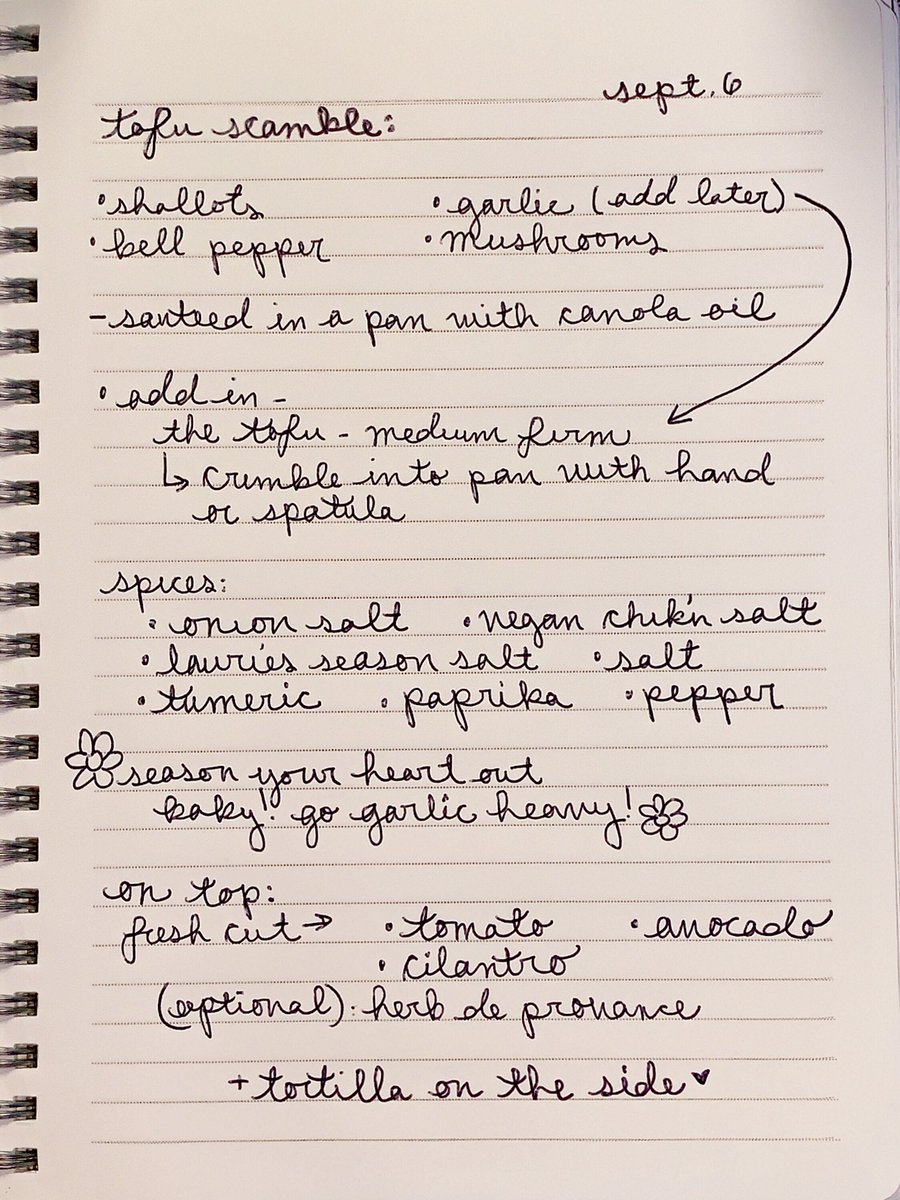 sept. 6
tofu scamble:
• shallots • garlic (add later)
• bell pepper • mushrooms
- sauteed in a pan with canola oil
• add in -
the tofu - medium firm
↳ crumble into pan with hand
or spatula
spices:
• onion salt • vegan chik'n salt
• lauries season salt • salt
• tumeric • paprika • pepper
season your heart out
baby! go garlic heavy!
on top:
fresh cut → • tomato • avocado
• cilantro
(optional) • herb de provance
+ tortilla on the side ♥